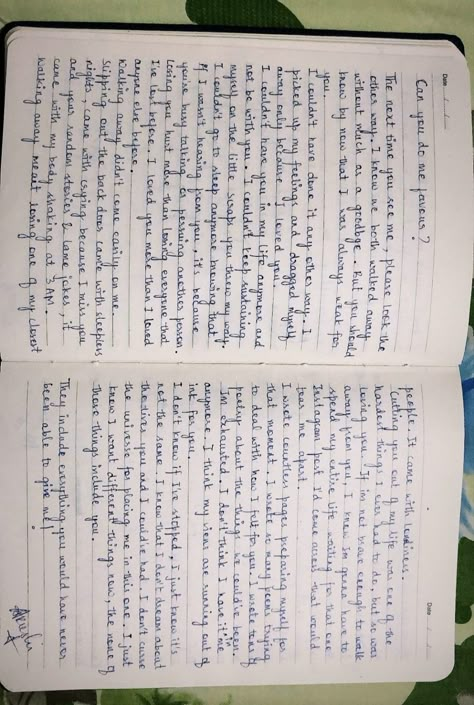 Date
Can you do me favour?
The next time you see me, please look the
other way. I know we both walked away
without much as a goodbye. But you should
know by now that I was always weak for
you.
I couldn't have done it any other way. I
picked up my feelings and dragged myself
away only because I loved you.
I couldn't have you in my life anymore and
not be with you. I couldn't keep sustaining
myself on the little scraps you threw my way.
I couldn't go to sleep anymore knowing that
if I wasn't hearing from you, it's because
you're busy talking or persuing another person.
Losing you hurt more than losing everyone that
I've lost before. I loved you more than I loved
anyone else before.
Walking away didn't come easily on me
slipping out the back door came with sleepless
nights, came with crying because I miss you
and your random stories & lame jokes, it
came with my body shaking at 3 AM.
Walking away meant losing one of my closest
Date
people. It came with loneliness.
Cutting you out of my life was one of the
hardest things I ever had to do, but so was
loving you. If im not brave enough to walk
away from you, I know Im gonna have to
spend my entire life waiting for that one
Instagram post I'd come across that would
tear me apart.
I wrote countless pages preparing myself for
that moment. I wrote so many poems trying
to deal with how I felt to you. I wrote
poetry about the things we could've been.
Im exhausted. I don't think I have it in me
anymore. I think my views are running out of
ink for you.
I don't know if I've stopped, I just know it's
not the same. I know that I don't dream about
the lives you and I could've had. I don't curse
the universe for placing me in this one. I just
know I want different things now. And none of
those things include you.
They include everything you would have never
been able to give me!